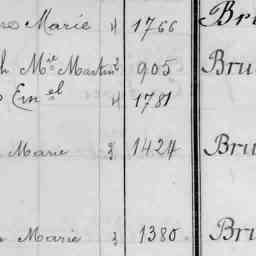 Marie 4 1766 Bru
h Mie Martin 2 905 Bru
Emel 4 1781
Marie 3 1424 Bru
Marie 3 1380 Bru